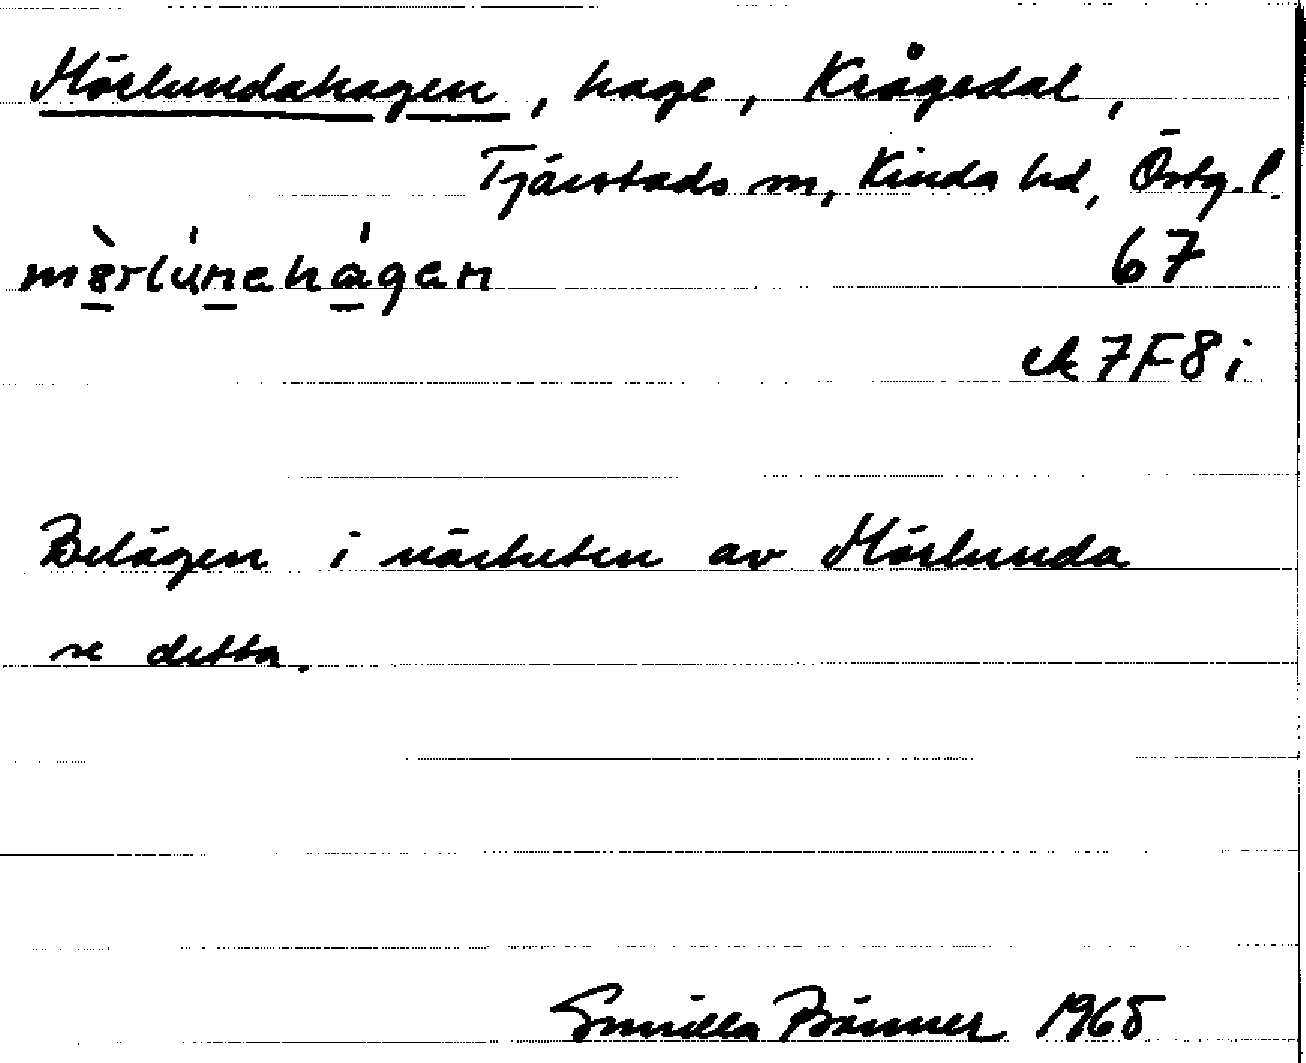 Mörlundahagen, hage, Krågedal,
Tjärstads sn, Kinda hd, Östg.l.
67
ek 7F8i
Belägen i närheten av Mörlunda
se detta.
Gunilla 1965